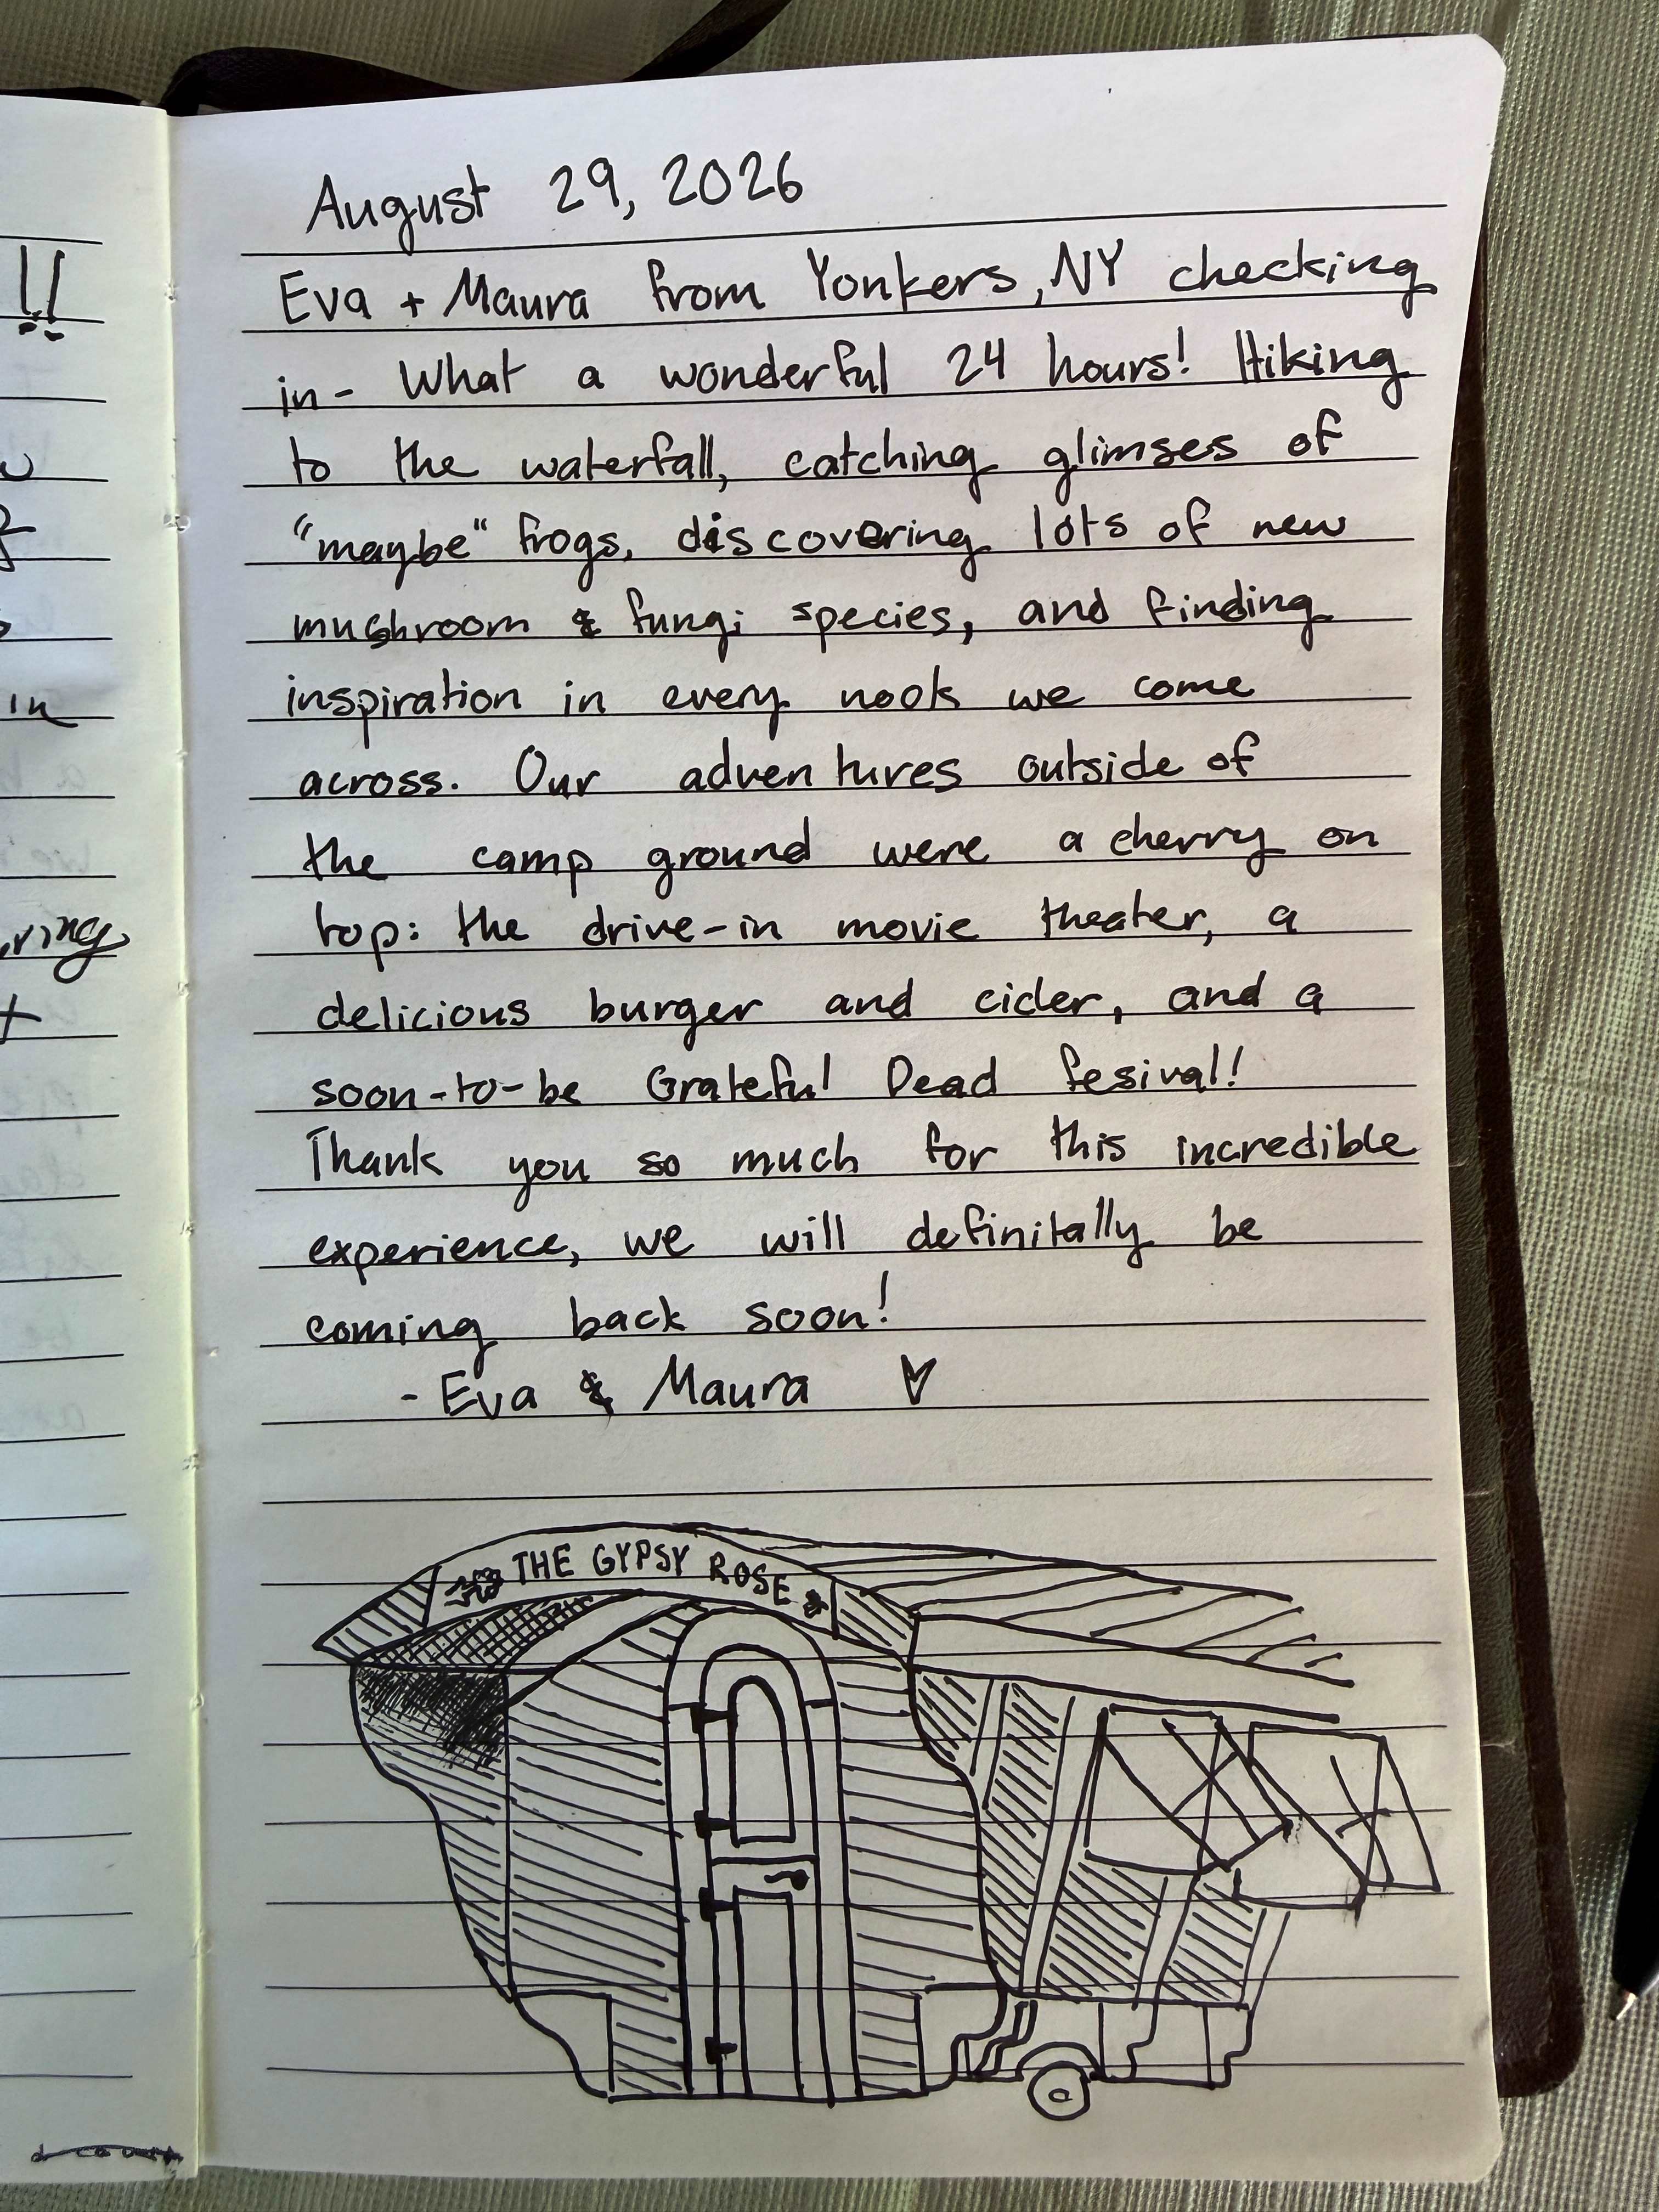 August 29, 2026
Eva + Maura from Yonkers, NY checking
in - What a wonderful 24 hours! Hiking
to the waterfall, catching glimses of
"maybe" frogs, discovering lots of new
mushroom & fungi species, and finding
inspiration in every nook we come
across. Our adventures outside of
the camp ground were a cherry on
top: the drive-in movie theater, a
delicious burger and cider, and a
soon-to-be Grateful Dead fesival!
Thank you so much for this incredible
experience, we will definitally be
coming back soon!
- Eva & Maura ♥
THE GYPSY ROSE
!!
in